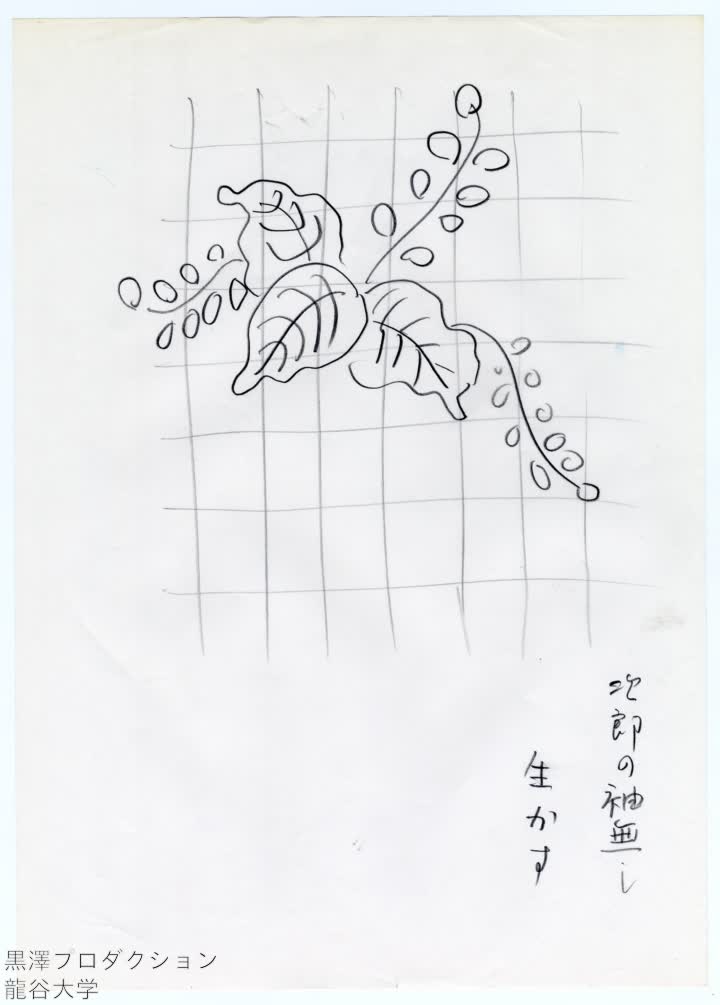 次郎の袖無し
生かす
黒澤プロダクション
龍谷大学